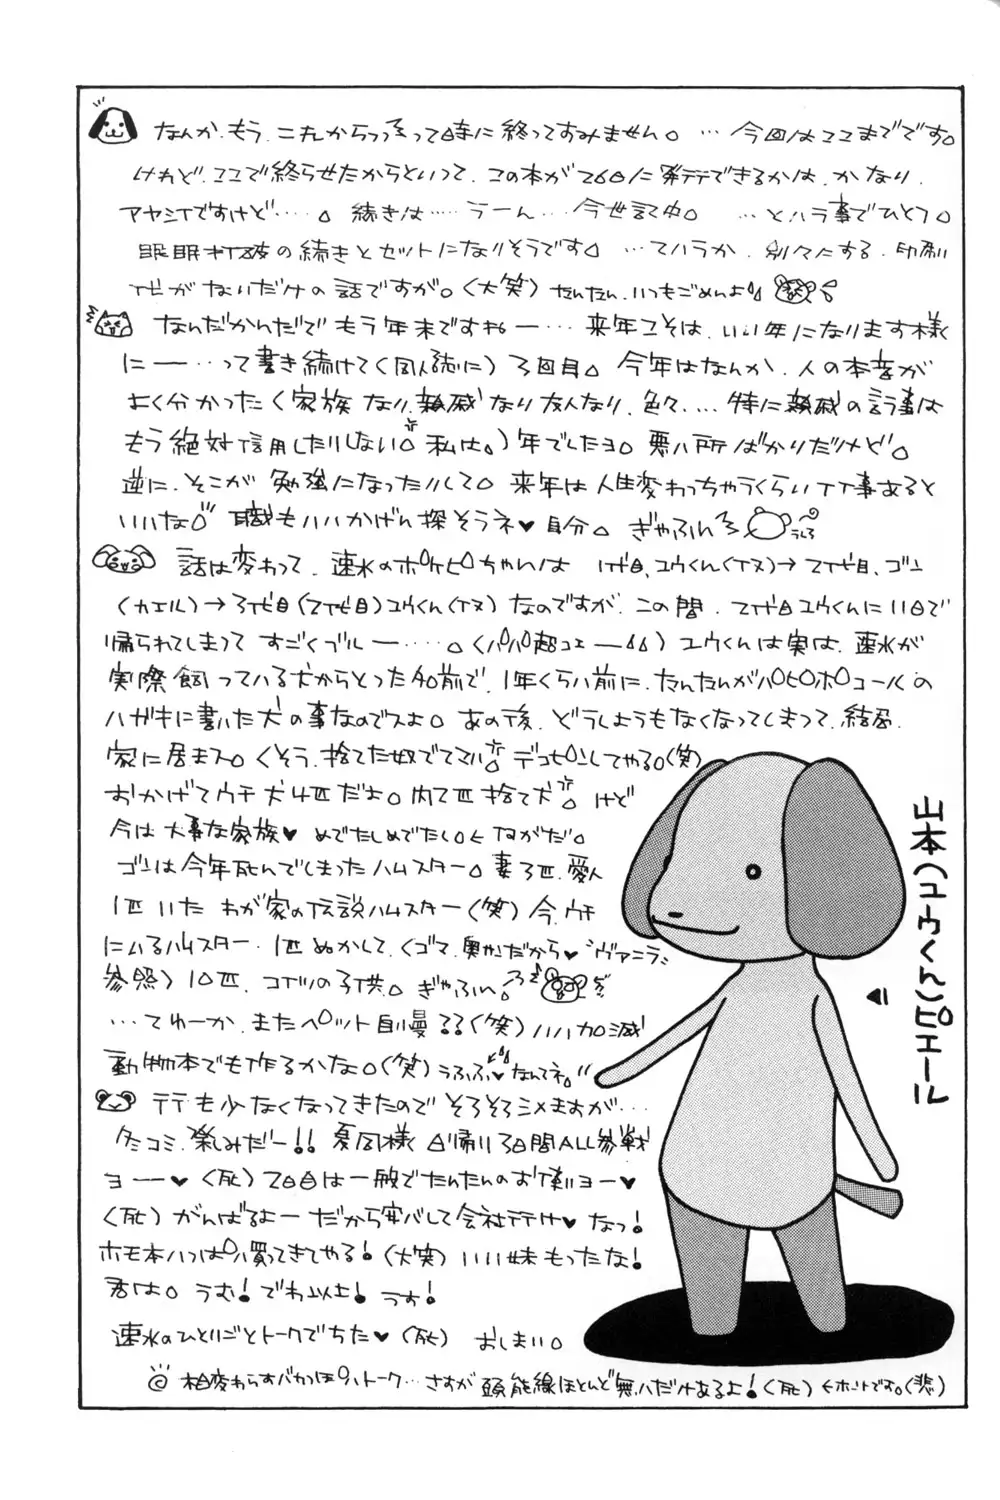 なんか、もう、これからっって時に終ってすみません。…今回はここまでです。
けれど、ここで終らせたからといって、この本が26日に発行できるかは、かなり、
アヤシイですけど……。続きは……うーん…今世記中。…とハラ事でひとつ。
眠眠打破の続きとセットになりそうです。…てハラか、別々にする、印刷
代がないだけの話ですが。(大笑)たんたん、いつもごめんよ
なんだかんだでもう年末ですねー…来年こそは、いい年になります様
にー…って書き続けて(同人誌に)3回目。今年はなんか、人の本音が
よく分かったく家族なり、親戚なり友人なり、色々…特に親戚の言う事は
もう絶対信用したりしない。私は。)年でしたヨ。悪い所ばかりだけど。
逆に、そこが勉強になったりして。来年は人生変わっちゃうくらいイイ事あると
いいな 職もいいかげん探そうネ♥自分。ぎゃふん
話は変わって、速水のポケピーちゃんは 1代目、ユウくん(イヌ)→2代目、ゴン
(カエル)→3代目(2代目)ユウくん(イヌ)なのですが、この間、2代目ユウくんに11日で
帰られてしまってすごくブルー……。(パパ超コエー)ユウくんは実は、速水が
実際飼っている犬からとった名前で、1年くらい前に、たんたんがパピポコールの
ハガキに書いた犬の事なのでスよ。あの後、どうしようもなくなってしまって、結局、
家に居まス。くそう、捨てた奴でてこい。デコピンしてやる。(笑)
おかげでウチ犬4匹だよ。内2匹捨て犬。けど
今は大事な家族♥めでたしめでたし。←ながだ。
ゴンは今年死んでしまったハムスター。妻3匹、愛人
1匹いたわが家の伝説ハムスター(笑)今、ウチ
にいるハムスター、1匹ぬかして、(ゴマ、奥がだから♥ヴァニラ
参照)10匹、コイツの子供。ぎゃふん。
…てゆーか、またペット自慢??(笑)いい加減
動物本でも作るかな。(笑)うふふ♥なんてネ。
行も少なくなってきたのでそろそろシメますが…
冬コミ、楽しみだー!!夏同様日帰り3日間ALL参戦
ヨー♥(死)2日目は一般でたんたんのお使いヨー♥
(死)がんばるよーだから安心して会社行け♥なっ!
ホモ本いっぱい買ってきてやる!(大笑)いい妹もったな!
君は。うむ!でわ以上!うす!
速水のひとりごとトークでちた♥(死)おしまい。
◎相変わらずバカっぽいトーク…さすが頭能線ほとんど無いだけあるよ!(死)←ホントです。(悲)
山本(ユウくん)ピエール